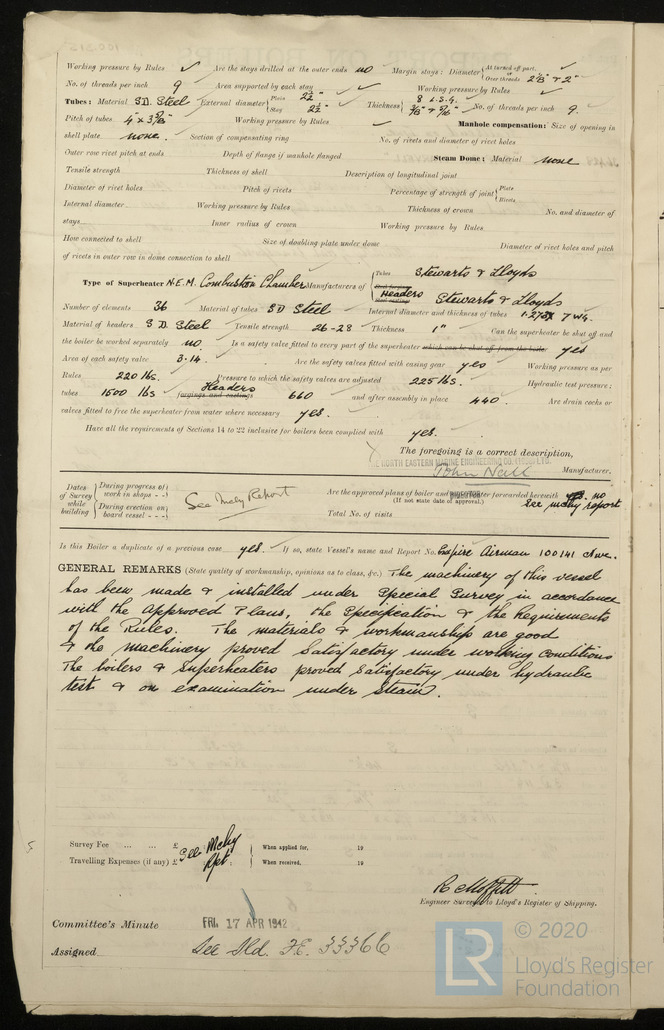 Working pressure by Rules ✓ Are the stays drilled at the outer ends no Margin stays: Diameter { At turned off part, or Over threads 2 1/8" & 2"
No. of threads per inch 9 Area supported by each stay Working pressure by Rules ✓
Tubes: Material S.D. Steel External diameter { Plain 2 1/2" Stay 2 1/2" Thickness { 8 L.S.G. 3/16" & 5/16" No. of threads per inch 9.
Pitch of tubes Working pressure by Rules Manhole compensation: Size of opening in
shell plate none. Section of compensating ring No. of rivets and diameter of rivet holes
Outer row rivet pitch at ends Depth of flange if manhole flanged Steam Dome: Material none
Tensile strength Thickness of shell Description of longitudinal joint
Diameter of rivet holes Pitch of rivets Percentage of strength of joint { Plate Rivets
Internal diameter Working pressure by Rules Thickness of crown No. and diameter of
stays Inner radius of crown Working pressure by Rules
How connected to shell Size of doubling plate under dome Diameter of rivet holes and pitch
of rivets in outer row in dome connection to shell
Type of Superheater N.E.M. Combustion Chamber Manufacturers of { Tubes Stewarts & Lloyds
Headers Stewarts & Lloyds
Number of elements 36 Material of tubes S D Steel Internal diameter and thickness of tubes 7 W.G.
Material of headers S.D. Steel Tensile strength 26-28 Thickness 1" Can the superheater be shut off and
the boiler be worked separately no Is a safety valve fitted to every part of the superheater which can be shut off from the boiler yes
Area of each safety valve 3.14. Are the safety valves fitted with easing gear yes Working pressure as per
Rules 220 lbs. Pressure to which the safety valves are adjusted 225 lbs. Hydraulic test pressure:
tubes 1500 lbs forgings and castings Headers 660 and after assembly in place 440. Are drain cocks or
valves fitted to free the superheater from water where necessary yes.
Have all the requirements of Sections 14 to 22 inclusive for boilers been complied with yes.
The foregoing is a correct description,
THE NORTH EASTERN MARINE ENGINEERING CO. (1938) LTD.
John Neill Manufacturer.
Dates of Survey while building { During progress of work in shops - - During erection on board vessel - - - } See Mchy Report
Are the approved plans of boiler and superheater forwarded herewith no
(If not state date of approval.)
Total No. of visits See mchy report
Is this Boiler a duplicate of a previous case yes. If so, state Vessel's name and Report No. Empire Airman 100141 Nwc.
GENERAL REMARKS (State quality of workmanship, opinions as to class, &c.) The machinery of this vessel
has been made & installed under Special Survey in accordance
with the approved Plans, the Specification & the Requirements
of the Rules. The materials & workmanship are good
& the machinery proved satisfactory under working conditions
The boilers & superheaters proved satisfactory under hydraulic
test & on examination under steam.
Survey Fee ... ... £ See Mchy Rpt. When applied for, 19
Travelling Expenses (if any) £ When received, 19
R C Moffett
Engineer Surveyor to Lloyd's Register of Shipping.
Committee's Minute FRI. 17 APR 1942
Assigned See Sld. F.E. 33366
LR © 2020
Lloyd's Register
Foundation